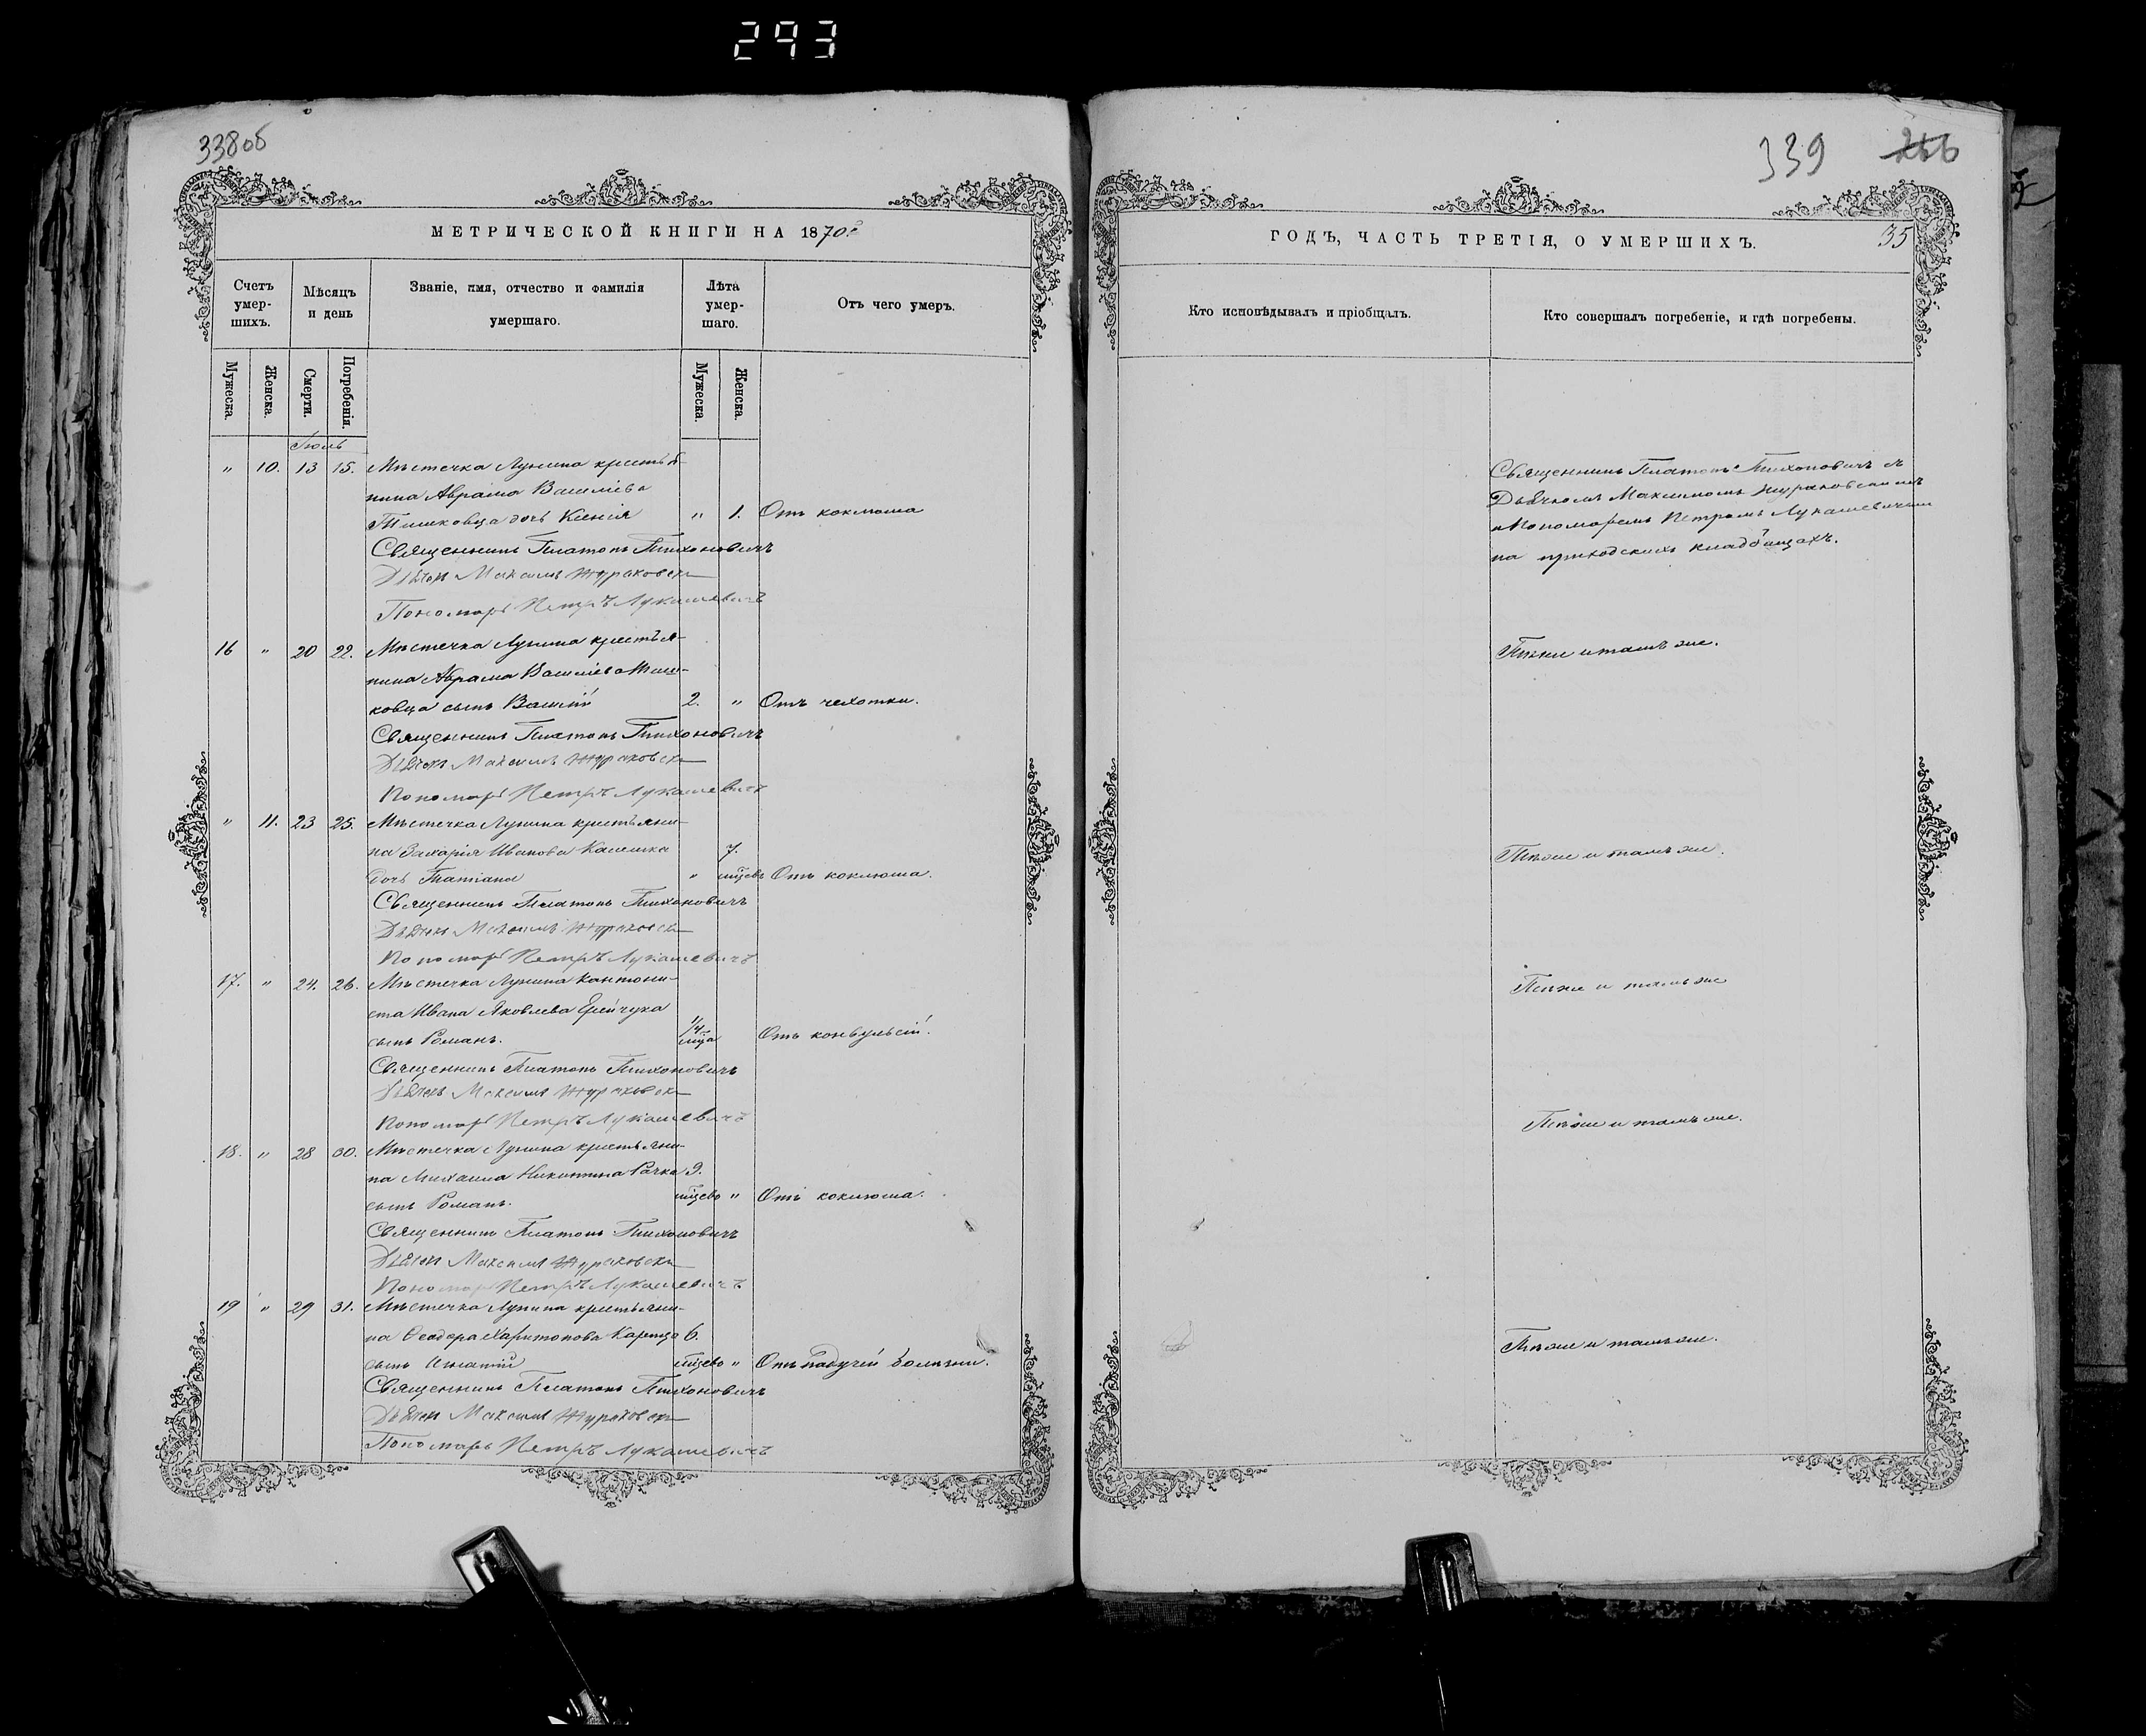 293
338об
МЕТРИЧЕСКОЙ КНИГИ НА 1870й
Счетъ умер-шихъ.
Мѣсяцъ и день
Званіе, имя, отчество и фамилія умершаго.
Лѣта умер-шаго.
Отъ чего умеръ.
Мужеска.
Женска.
Смерти.
Погребенія.
Мужеска.
Женска.
Іюль
" 10. 13 15. Мѣстечка Лунина крестья-
нина Аврама Василіева
Тишковца дочь Ксенія " 1. Отъ коклюша
Священникъ Платонъ Тихоновичъ
Дьячекъ Максимъ Жураковскій
Пономарь Петръ Лукашевичъ
16 " 20 22. Мѣстечка Лунина крестья-
нина Аврама Василіева Тиш-
ковца сынъ Василій 2. " Отъ чахотки.
Священникъ Платонъ Тихоновичъ
Дьячекъ Максимъ Жураковскій
Пономарь Петръ Лукашевичъ
" 11. 23 25. Мѣстечка Лунина крестьяни-
на Захарія Иванова 7.
дочь Татіана " мѣсцевъ Отъ коклюша.
Священникъ Платонъ Тихоновичъ
Дьячекъ Максимъ Жураковскій
Пономарь Петръ Лукашевичъ
17. " 24. 26. Мѣстечка Лунина кантони-
ста Ивана Яковлева 1/4
сынъ Романъ. мѣсца Отъ конвульсій.
Священникъ Платонъ Тихоновичъ
Дьячекъ Максимъ Жураковскій
Пономарь Петръ Лукашевичъ
18. " 28 30. Мѣстечка Лунина крестьяни-
на Михаила Никитина Рачка 9.
сынъ Романъ. мѣсцевъ " Отъ коклюша.
Священникъ Платонъ Тихоновичъ
Дьячекъ Максимъ Жураковскій
Пономарь Петръ Лукашевичъ
19 " 29 31. Мѣстечка Лунина крестьяни-
на Ѳеодора Харитонова 6.
сынъ Игнатій мѣсцевъ " Отъ падучей болѣзни.
Священникъ Платонъ Тихоновичъ
Дьячекъ Максимъ Жураковскій
Пономарь Петръ Лукашевичъ
339
35
ГОДЪ, ЧАСТЬ ТРЕТІЯ, О УМЕРШИХЪ.
Кто исповѣдывалъ и пріобщалъ.
Кто совершалъ погребеніе, и гдѣ погребены.
Священникъ Платонъ Тихоновичъ съ
Дьячкомъ Максимомъ Жураковскимъ
и Пономаремъ Петромъ Лукашевичемъ
на приходскихъ кладбищахъ.
Тѣже и тамъ же.
Тѣже и тамъ же.
Тѣже и тамъ же
Тѣже и тамъ же.
Тѣже и тамъ же.